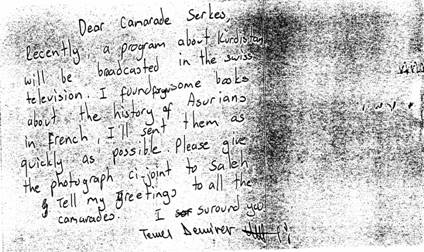 Dear Camarade Serkes,
Recently a program about Kurdistan
will be broadcasted in the swiss
television. I found for you some books
about the history of Asurians
in French, I'll sent them as
quickly as possible. Please give
the photograph ci-joint to Saleh
Tell my greetings to all the
camarades. I suround you
Temel Demirer